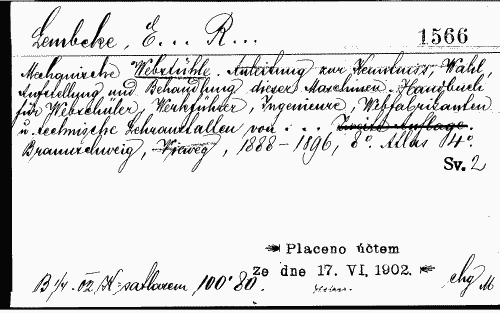 Lembcke, E... R...
1566
Mechanische Webstühle. Anleitung zur Kenntniss, Wahl,
Aufstellung und Behandlung dieser Maschinen. Handbuch
für Webschüler, Werkführer, Ingenieure, Webfabrikanten
u. technische Lehranstalten von ... Zweite Auflage.
Braunschweig, Vieweg, 1888-1896, 8°. Atlas 4°.
Sv. 2
Placeno účtem
ze dne 17. VI. 1902.
02 K 100·80.